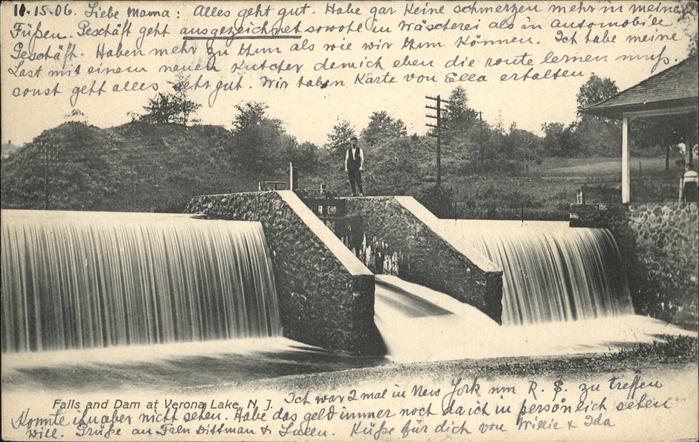 11.15.06. Liebe Mama: Alles geht gut. Habe gar keine schmerzen mehr in meinen
Füßen. Geschäft geht ausgezeichnet sowohl in Wäscherei als in automobile
Geschäft. Haben mehr zu thun als wie wir thun können. Ich habe meine
Last mit einem neuen Kutscher dem ich eben die route lernen muß
sonst geht alles sehr gut. Wir haben Karte von Ella erhalten
Falls and Dam at Verona Lake, N. J.
Ich war 2 mal in New York um R. S. zu treffen
Konnte ihn aber nicht sehen. Habe das geld immer noch da ich in persönlich sehen
will. Grüße an Frln Dittman & Küße für dich von Willie & Ida